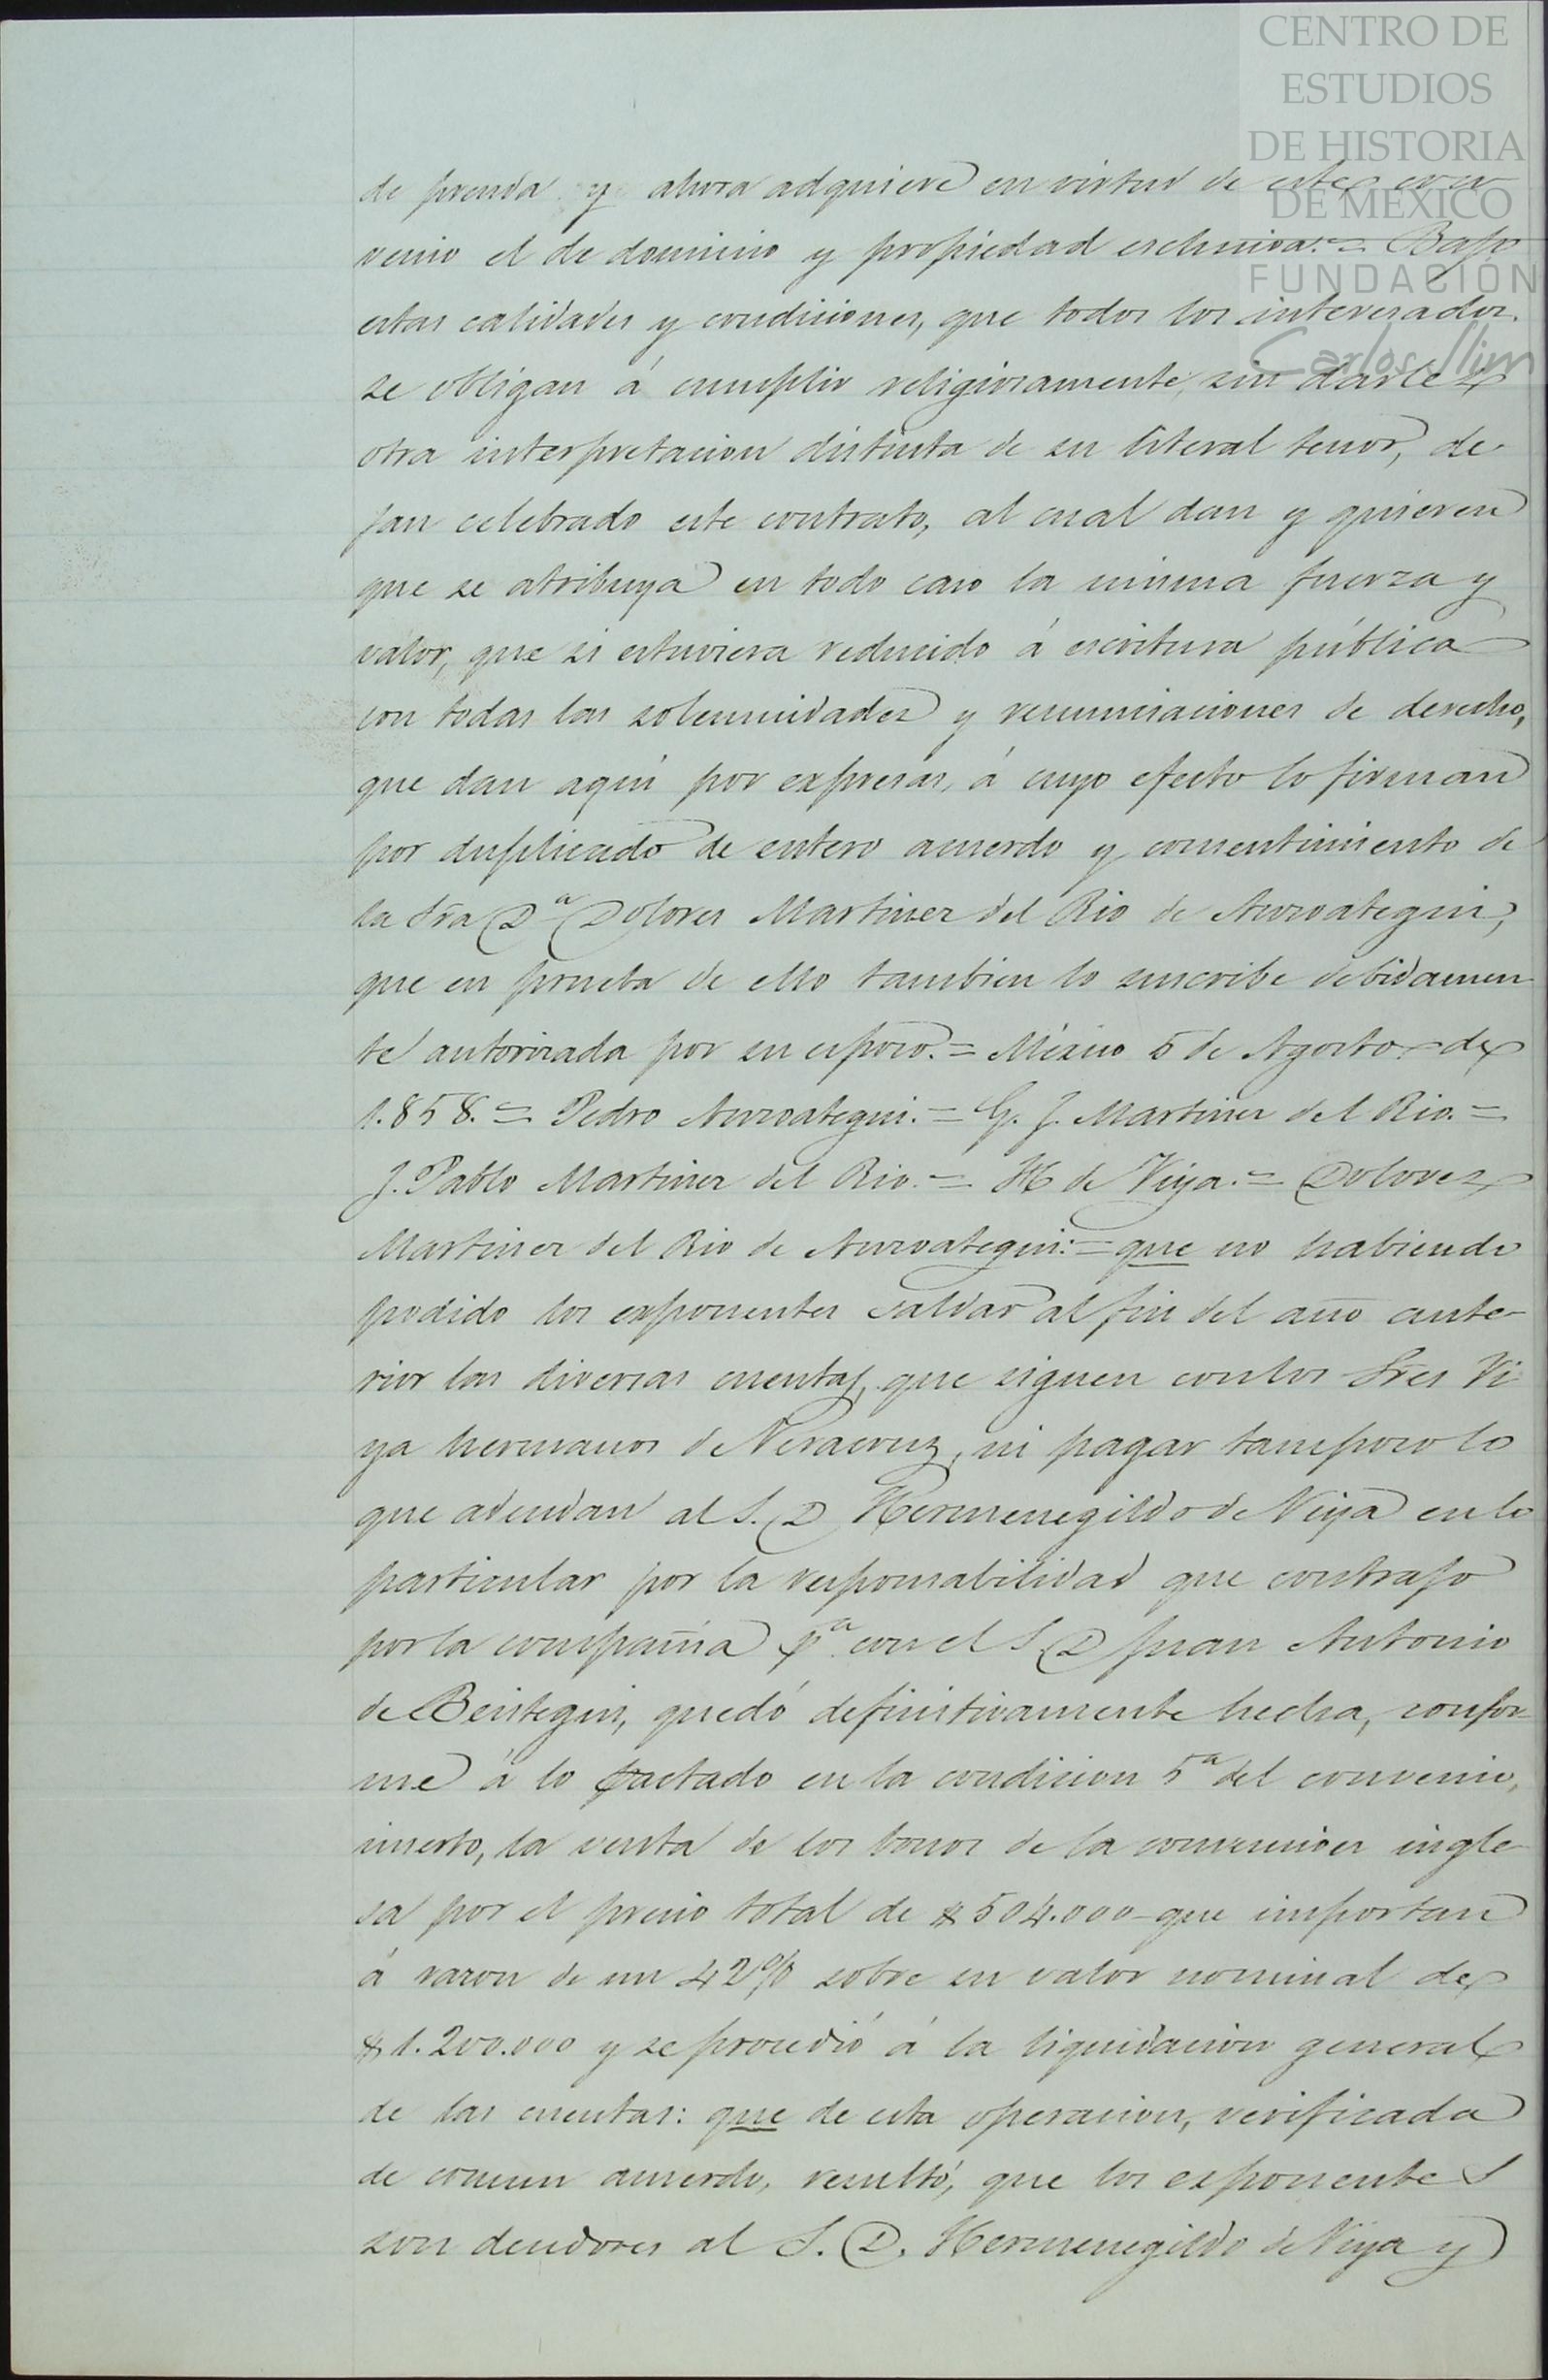 CENTRO DE
ESTUDIOS
DE HISTORIA
DE MÉXICO
FUNDACIÓN
Carlos Slim
de prenda y ahora adquiere en virtud de este con
venio el de dominio y propiedad esclusiva.= Bajo
estas calidades y condiciones, que todos los interesados
se obligan á cumplir religiosamente, sin darles
otra interpretacion distinta de su literal tenor, de
jan celebrado este contrato, al cual dan y quieren
que se atribuya en todo caso la misma fuerza y
valor, que si estuviera reducido á escritura pública
con todas las solemnidades y renunciaciones de derecho,
que dan aquí por expresas, á cuyo efecto lo firman
por duplicado de entero acuerdo y consentimiento de
la Sra Dª Dolores Martinez del Rio de Ansoategui,
que en prueba de ello tambien lo suscribe debidamen
te autorizada por su esposo.= México 5 de Agosto de
1.858.= Pedro Ansoategui.= G. J. Martinez del Rio.=
J. Pablo Martinez del Rio.= H de Viya.= Dolores
Martinez del Rio de Ansoategui:= que no habiendo
podido los exponentes saldar al fin del año ante
rior las diversas cuentas, que siguen con los Sres Vi
ya hermanos de Veracruz, ni pagar tampoco lo
que adeudan al S. D Hermenegildo de Viya en lo
particular por la responsabilidad que contrajo
por la compañia pª con el S D Juan Antonio
de Beistegui, quedó definitivamente hecha, confor-
me á lo pactado en la condicion 5ª del convenio,
inserto, la venta de los bonos de la convencion ingle
sa por el precio total de $504.000 que importan
á razon de un 42% sobre su valor nominal de
$1.200.000 y se procedió á la liquidacion general
de las cuentas: que de esta operacion, verificada
de comun acuerdo, resultó, que los exponentes
son deudores al S. D. Hermenegildo de Viya y